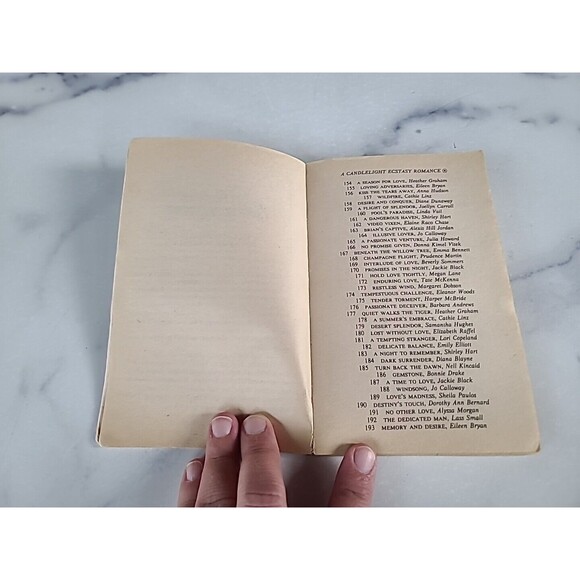 A CANDLELIGHT ECSTASY ROMANCE ®
154 A SEASON FOR LOVE, Heather Graham
155 LOVING ADVERSARIES, Eileen Bryan
156 KISS THE TEARS AWAY, Anna Hudson
157 WILDFIRE, Cathie Linz
158 DESIRE AND CONQUER, Diana Dunaway
159 A FLIGHT OF SPLENDOR, Joellyn Carroll
160 FOOL'S PARADISE, Linda Vail
161 A DANGEROUS HAVEN, Shirley Hart
162 VIDEO VIXEN, Elaine Raco Chase
163 BRIAN'S CAPTIVE, Alexis Hill Jordan
164 ILLUSIVE LOVER, Jo Calloway
165 A PASSIONATE VENTURE, Julia Howard
166 NO PROMISE GIVEN, Donna Kimel Vitek
167 BENEATH THE WILLOW TREE, Emma Bennett
168 CHAMPAGNE FLIGHT, Prudence Martin
169 INTERLUDE OF LOVE, Beverly Sommers
170 PROMISES IN THE NIGHT, Jackie Black
171 HOLD LOVE TIGHTLY, Megan Lane
172 ENDURING LOVE, Tate McKenna
173 RESTLESS WIND, Margaret Dobson
174 TEMPESTUOUS CHALLENGE, Eleanor Woods
175 TENDER TORMENT, Harper McBride
176 PASSIONATE DECEIVER, Barbara Andrews
177 QUIET WALKS THE TIGER, Heather Graham
178 A SUMMER'S EMBRACE, Cathie Linz
179 DESERT SPLENDOR, Samantha Hughes
180 LOST WITHOUT LOVE, Elizabeth Raffel
181 A TEMPTING STRANGER, Lori Copeland
182 DELICATE BALANCE, Emily Elliott
183 A NIGHT TO REMEMBER, Shirley Hart
184 DARK SURRENDER, Diana Blayne
185 TURN BACK THE DAWN, Nell Kincaid
186 GEMSTONE, Bonnie Drake
187 A TIME TO LOVE, Jackie Black
188 WINDSONG, Jo Calloway
189 LOVE'S MADNESS, Sheila Paulos
190 DESTINY'S TOUCH, Dorothy Ann Bernard
191 NO OTHER LOVE, Alyssa Morgan
192 THE DEDICATED MAN, Lass Small
193 MEMORY AND DESIRE, Eileen Bryan